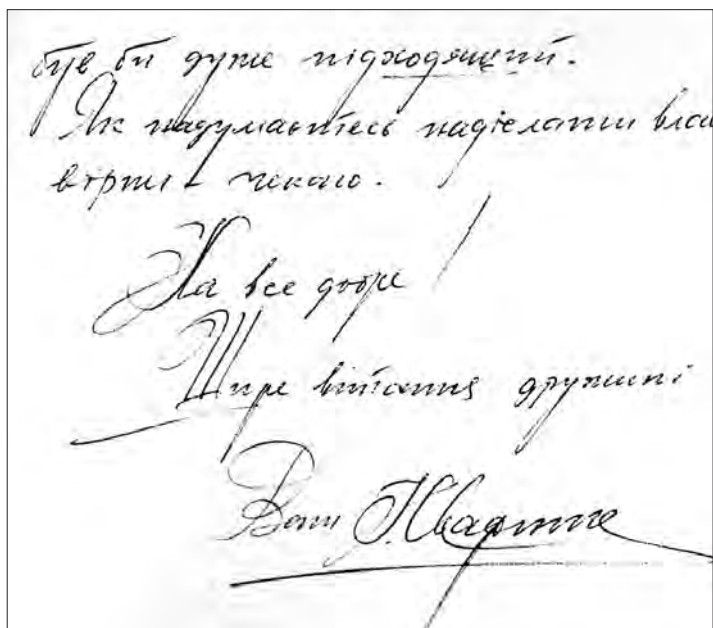 був би дуже підходящий.
Як надумаєтесь надіслати
вірші – чекаю.
На все добре!
Щире вітання дружині
Ваш